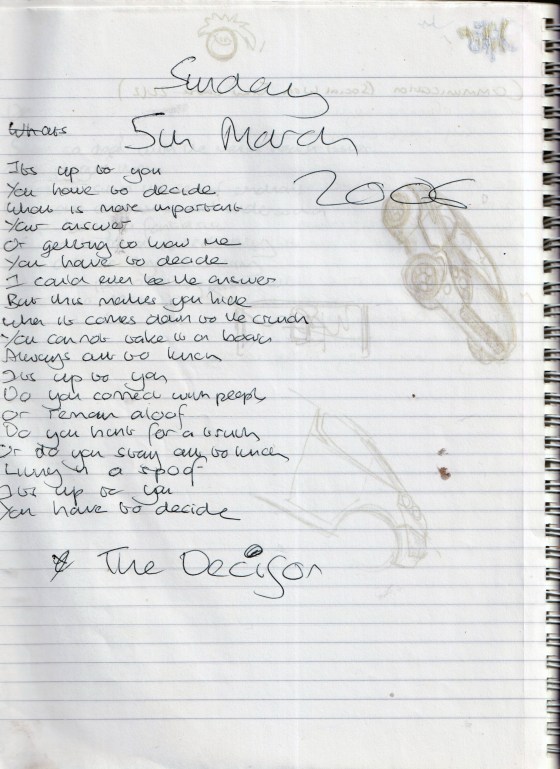 Sunday
5th March
2006
Whats
Its up to you
You have to decide
What is more important
Your answer
Or getting to know me
You have to decide
I could even be the answer
But this makes you hide
When it comes down to the crunch
You cannot take it on board
Always out to lunch
Its up to you
Do you connect with people
or remain aloof
Do you hunt for a truth
Or do you stay out to lunch
Living in a spoof
Its up to you
You have to decide
The Decison